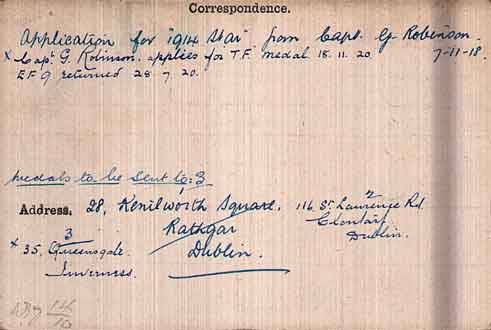 Correspondence.
Application for "1914 Star" from Capt. G Robinson.
x Capt G. Robinson. applies for T.F. medal 18.11.20. 7-11-18.
E F 9 returned 28.7.20.
medals to be sent to: 3
Address. 28, Kenilworth Square,
Rathgar
Dublin.
2
116 St Laurence Rd
Clontarf
Dublin.
3
x 35. Queensgate.
Inverness.